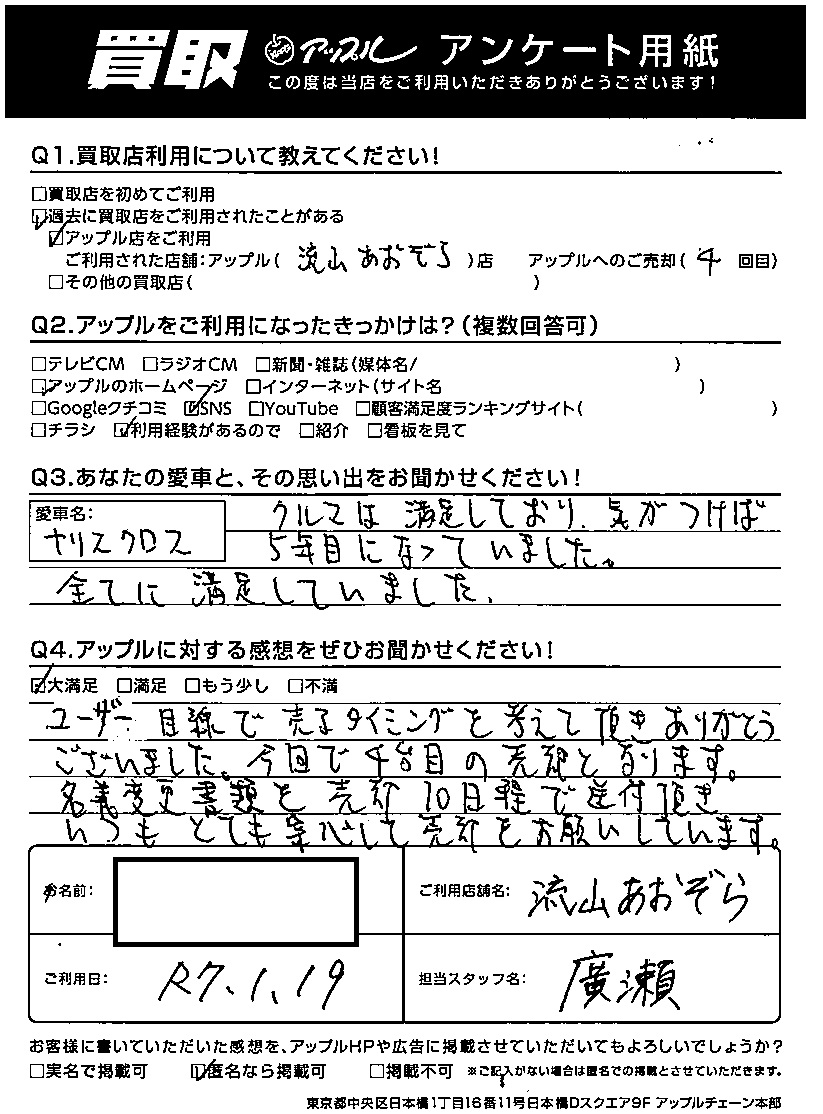 買取 アップル アンケート用紙
この度は当店をご利用いただきありがとうございます！
Q1.買取店利用について教えてください！
□買取店を初めてご利用
☑過去に買取店をご利用されたことがある
☑アップル店をご利用
ご利用された店舗：アップル( 流山あおぞら )店 アップルへのご売却( 4 回目)
□その他の買取店( )
Q2.アップルをご利用になったきっかけは？(複数回答可)
□テレビCM □ラジオCM □新聞・雑誌(媒体名/ )
☑アップルのホームページ □インターネット(サイト名 )
□Googleクチコミ ☑SNS □YouTube □顧客満足度ランキングサイト( )
□チラシ ☑利用経験があるので □紹介 □看板を見て
Q3.あなたの愛車と、その思い出をお聞かせください！
愛車名：
ヤリスクロス
クルマは満足しており、気がつけば
5年目になっていました。
全てに満足していました、
Q4.アップルに対する感想をぜひお聞かせください！
☑大満足 □満足 □もう少し □不満
ユーザー目線で売るタイミングを考えて頂きありがとう
ございました。今回で4台目の売却となります。
名義変更書類を売却10日程で送付頂き
いつもとても安心して売却をお願いしています。
お名前：
ご利用店舗名： 流山あおぞら
ご利用日： R7.1.19
担当スタッフ名： 廣瀬
お客様に書いていただいた感想を、アップルHPや広告に掲載させていただいてもよろしいでしょうか？
□実名で掲載可 ☑匿名なら掲載可 □掲載不可 ※ご記入がない場合は匿名での掲載とさせていただきます。
東京都中央区日本橋1丁目16番11号日本橋Dスクエア9F アップルチェーン本部